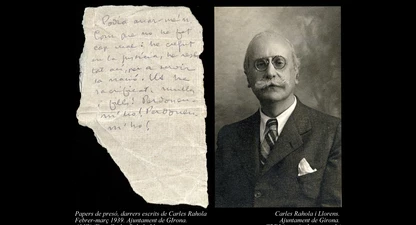 Podia anar-me'n
Com que no he fet
cap mal i he cregut
en la justícia, he restat
ací, per a
Us he
sacrificat, muller
i fills! Perdoneu-
m'ho! Perdoneu-
m'ho!
Papers de presó, darrers escrits de Carles Rahola
Febrer-març 1939. Ajuntament de Girona.
Carles Rahola i Llorens.
Ajuntament de Girona.